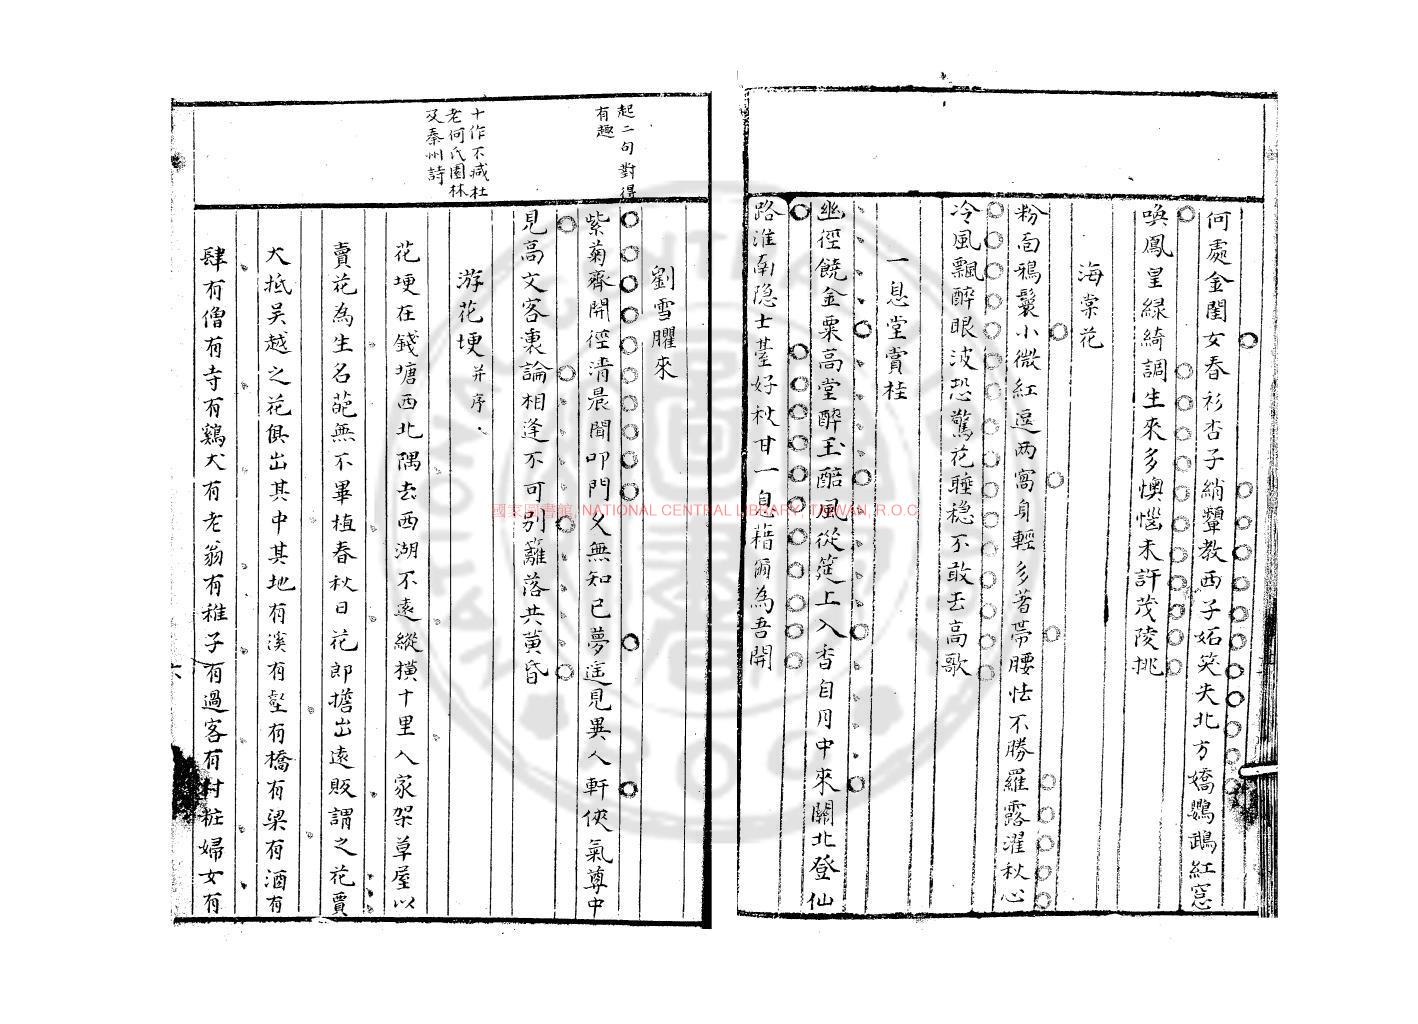 何處金閨女春衫杏子綃顰教西子妬笑失北方嬌鸚鵡紅窓
喚鳳皇綠綺調生來多懊惱未許茂陵挑
海棠花
粉面鴉鬟小微紅逗兩窩身輕多著帶腰怯不勝羅露濯秋心
冷風飄醉眼波恐驚花睡穏不敢去高歌
一息堂賞桂
幽徑饒金粟高堂醉玉醅風從筵上入香自月中來關北登仙
路淮南隐士臺好秋甘一息藉爾為吾開
起二句對得
有趣
劉雪臞來
紫菊齊開徑清晨聞叩門久無知己夢遥見異人軒俠氣尊中
見高文客裏論相逢不可别籬落共黄昏
十作不减杜
老何氏園林
又秦州詩
游花埂并序
花埂在錢塘西北隅去西湖不遠縱横十里人家架草屋以
賣花為生名葩無不畢植春秋日花郎擔出遠販謂之花賈
大抵吴越之花俱出其中其地有溪有壑有橋有梁有酒有
肆有僧有寺有鷄犬有老翁有稚子有過客有村粧婦女有
六
國家圖書館 NATIONAL CENTRAL LIBRARY, TAIWAN, R.O.C